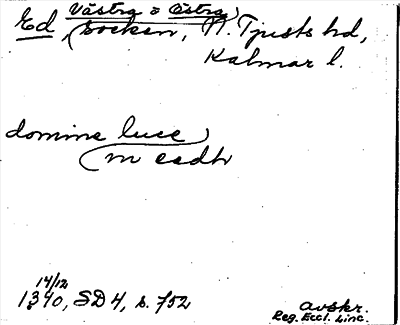 Västra o Östra
Ed, socken, N. Tjusts hd,
Kalmar l.
domina luce
m eedh
14/12
1340, SD 4, s. 752
avskr.
Reg. Eccl. Linc.